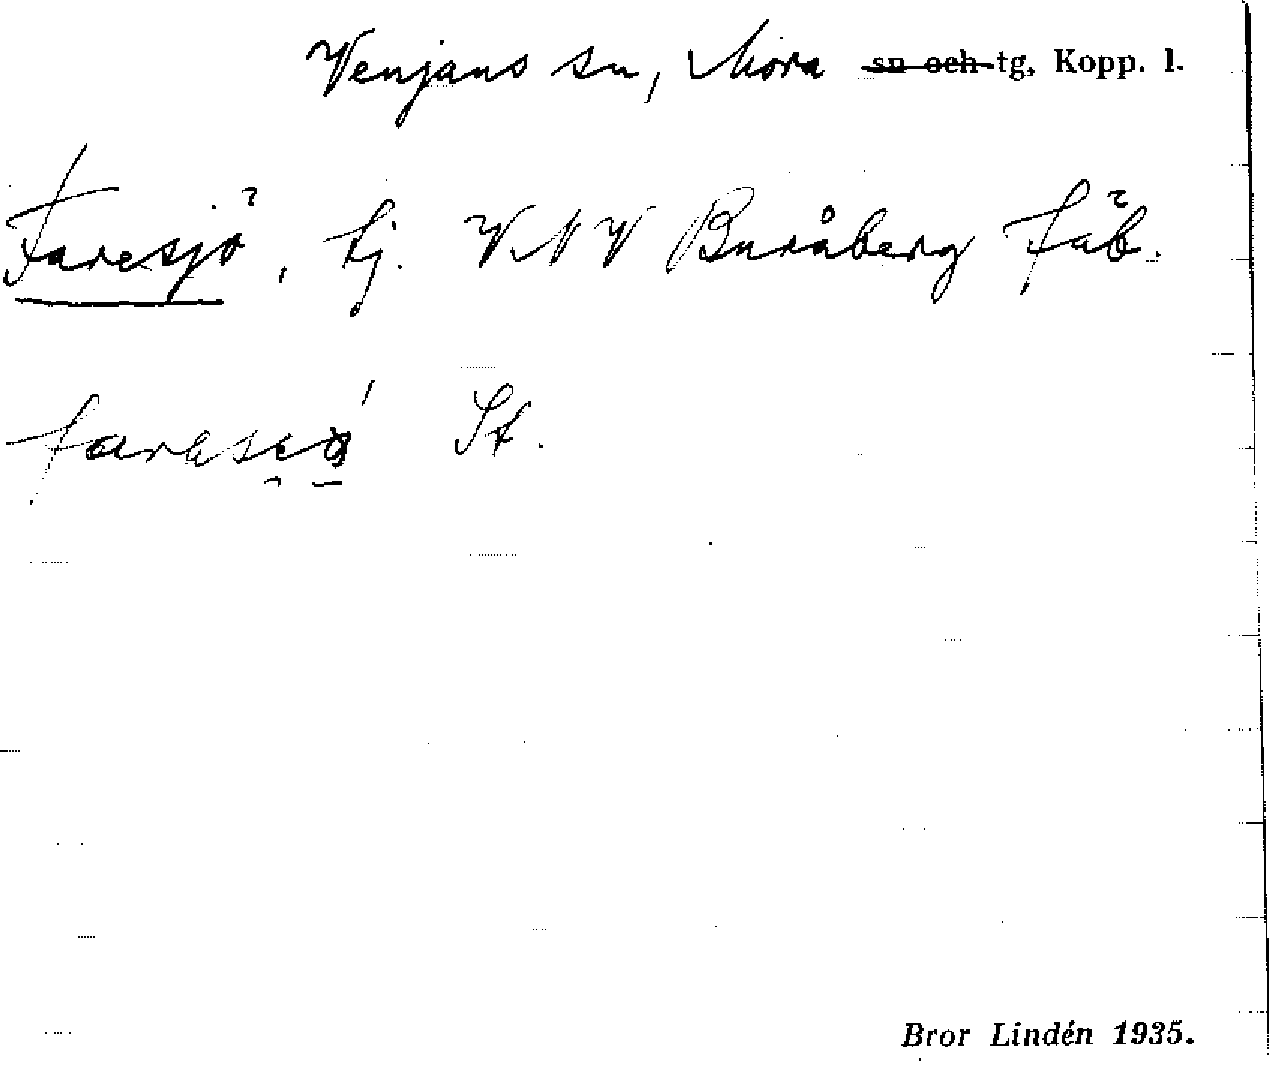 Venjans sn, Mora sn och tg, Kopp. l.
Faresjö, tj. VNV Buråberg fäb.
St.
Bror Lindén 1935.